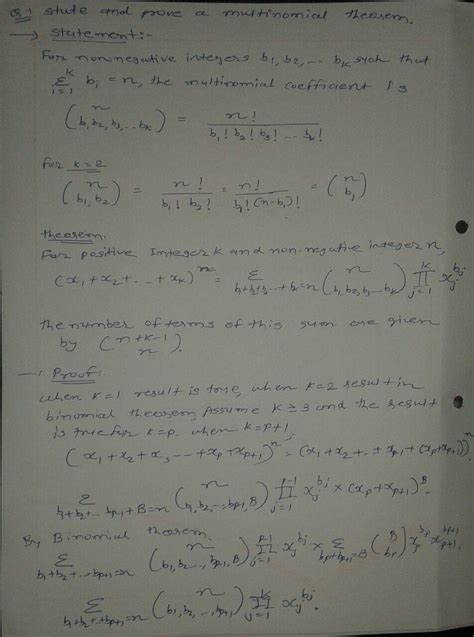 Q.1 state and prove a multinomial theorem.
→ statement:-
For non negative integers b₁, b₂, ... bₖ such that
Σᵢ₌₁ᵏ bᵢ = n, the multinomial coefficient is
(n / b₁, b₂, b₃, ... bₖ) = n! / b₁! b₂! b₃! ... bₖ!
For k=2
(n / b₁, b₂) = n! / b₁! b₂! = n! / b₁! (n-b₁)! = (n / b₁)
theorem.
For positive Integer k and non-negative integer n,
(x₁+x₂+...+xₖ)ⁿ = Σ b₁+b₂+b₃...+bₖ=n (n / b₁, b₂, b₃...bₖ) ∏ⱼ₌₁ᵏ xⱼᵇʲ
the number of terms of this sum are given
by (n+k-1 / n).
→ Proof:
when k=1 result is true, when k=2 result in
binomial theorem, Assume k≥3 and the result
is true for k=p. when k=p+1
(x₁+x₂+x₃...+xₚ+xₚ₊₁)ⁿ = (x₁+x₂+...+xₚ₋₁+(xₚ+xₚ₊₁))ⁿ
Σ b₁+b₂+...bₚ₋₁+B=n (n / b₁, b₂,...,bₚ₋₁, B) ∏ⱼ₌₁ᵖ⁻¹ xⱼᵇʲ × (xₚ+xₚ₊₁)ᴮ.
By Binomial theorem.
Σ b₁+b₂+...bₚ₊₁=n (n / b₁, b₂,..., bₚ₋₁, B) ∏ⱼ₌₁ᵖ⁻¹ xⱼᵇʲ × Σ bₚ+bₚ₊₁=B (B / bₚ) xₚᵇᵖ xₚ₊₁ᵇᵖ⁺¹
Σ b₁+b₂+...+bₚ₊₁=n (n / b₁, b₂, ... bₚ₊₁) ∏ⱼ₌₁ᵏ xⱼᵇʲ.